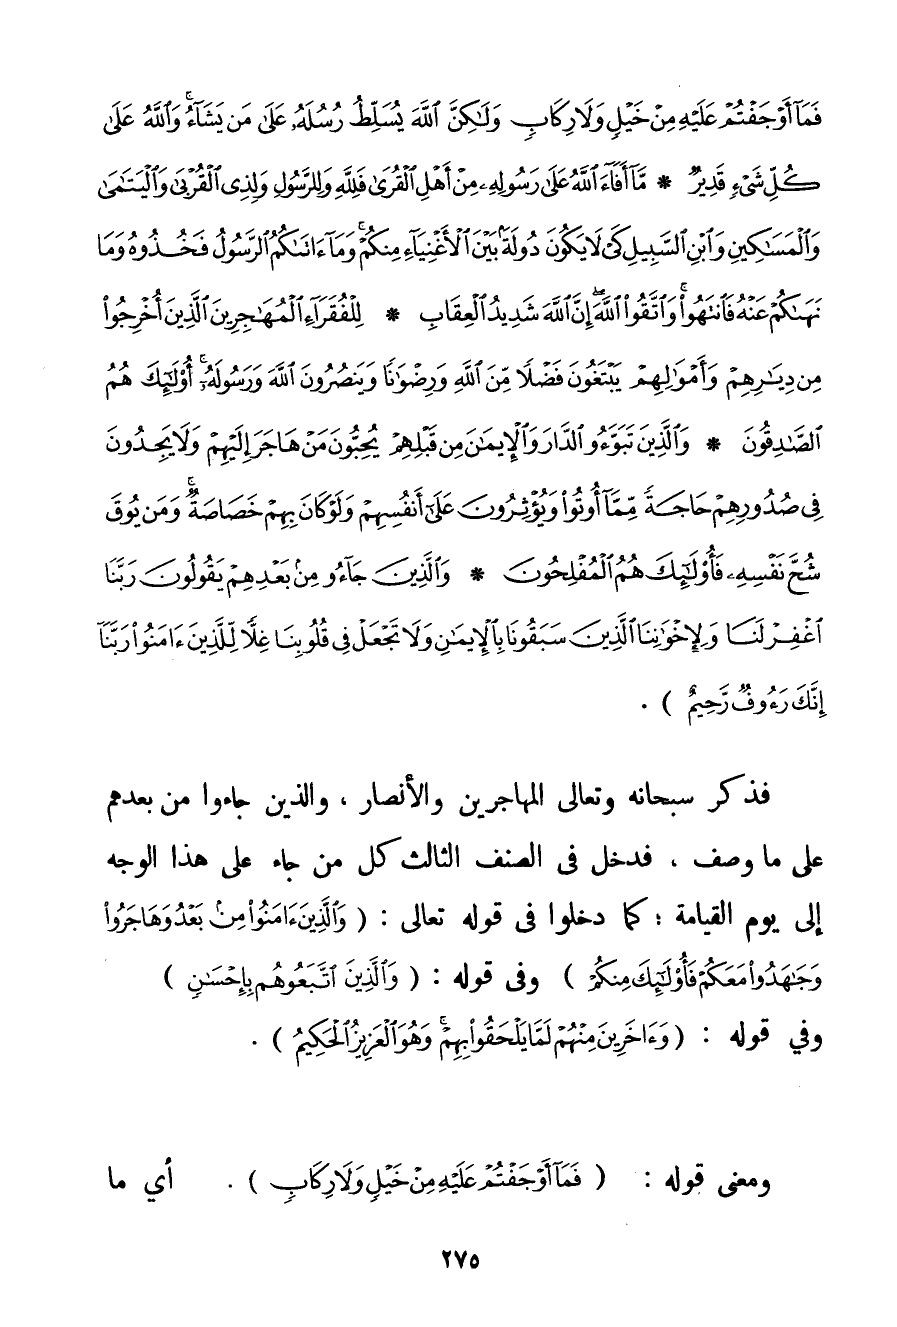 فَمَآ أَوْجَفْتُمْ عَلَيْهِ مِنْ خَيْلٍ وَلَا رِكَابٍ وَلَـٰكِنَّ ٱللَّهَ يُسَلِّطُ رُسُلَهُۥ عَلَىٰ مَن يَشَآءُ ۚ وَٱللَّهُ عَلَىٰ
كُلِّ شَىْءٍ قَدِيرٌ * مَّآ أَفَآءَ ٱللَّهُ عَلَىٰ رَسُولِهِۦ مِنْ أَهْلِ ٱلْقُرَىٰ فَلِلَّهِ وَلِلرَّسُولِ وَلِذِى ٱلْقُرْبَىٰ وَٱلْيَتَـٰمَىٰ
وَٱلْمَسَـٰكِينِ وَٱبْنِ ٱلسَّبِيلِ كَىْ لَا يَكُونَ دُولَةًۢ بَيْنَ ٱلْأَغْنِيَآءِ مِنكُمْ ۚ وَمَآ ءَاتَىٰكُمُ ٱلرَّسُولُ فَخُذُوهُ وَمَا
نَهَىٰكُمْ عَنْهُ فَٱنتَهُوا۟ ۚ وَٱتَّقُوا۟ ٱللَّهَ ۖ إِنَّ ٱللَّهَ شَدِيدُ ٱلْعِقَابِ * لِلْفُقَرَآءِ ٱلْمُهَـٰجِرِينَ ٱلَّذِينَ أُخْرِجُوا۟
مِن دِيَـٰرِهِمْ وَأَمْوَٰلِهِمْ يَبْتَغُونَ فَضْلًا مِّنَ ٱللَّهِ وَرِضْوَٰنًا وَيَنصُرُونَ ٱللَّهَ وَرَسُولَهُۥٓ ۚ أُو۟لَـٰٓئِكَ هُمُ
ٱلصَّـٰدِقُونَ * وَٱلَّذِينَ تَبَوَّءُو ٱلدَّارَ وَٱلْإِيمَـٰنَ مِن قَبْلِهِمْ يُحِبُّونَ مَنْ هَاجَرَ إِلَيْهِمْ وَلَا يَجِدُونَ
فِى صُدُورِهِمْ حَاجَةً مِّمَّآ أُوتُوا۟ وَيُؤْثِرُونَ عَلَىٰٓ أَنفُسِهِمْ وَلَوْ كَانَ بِهِمْ خَصَاصَةٌ ۚ وَمَن يُوقَ
شُحَّ نَفْسِهِۦ فَأُو۟لَـٰٓئِكَ هُمُ ٱلْمُفْلِحُونَ * وَٱلَّذِينَ جَآءُو مِنۢ بَعْدِهِمْ يَقُولُونَ رَبَّنَا
ٱغْفِرْ لَنَا وَلِإِخْوَٰنِنَا ٱلَّذِينَ سَبَقُونَا بِٱلْإِيمَـٰنِ وَلَا تَجْعَلْ فِى قُلُوبِنَا غِلًّا لِّلَّذِينَ ءَامَنُوا۟ رَبَّنَآ
إِنَّكَ رَءُوفٌ رَّحِيمٌ ) .
فذكر سبحانه وتعالى المهاجرين والأنصار ، والذين جاءوا من بعدهم
على ما وصف ، فدخل فى الصنف الثالث كل من جاء على هذا الوجه
إلى يوم القيامة ؛ كما دخلوا فى قوله تعالى : ( وَٱلَّذِينَ ءَامَنُوا۟ مِنۢ بَعْدُ وَهَاجَرُوا۟
وَجَـٰهَدُوا۟ مَعَكُمْ فَأُو۟لَـٰٓئِكَ مِنكُمْ ) وفى قوله : ( وَٱلَّذِينَ ٱتَّبَعُوهُم بِإِحْسَـٰنٍ )
وفي قوله : ( وَءَاخَرِينَ مِنْهُمْ لَمَّا يَلْحَقُوا۟ بِهِمْ ۚ وَهُوَ ٱلْعَزِيزُ ٱلْحَكِيمُ ) .
ومعنى قوله : ( فَمَآ أَوْجَفْتُمْ عَلَيْهِ مِنْ خَيْلٍ وَلَا رِكَابٍ ) . أي ما
٢٧٥